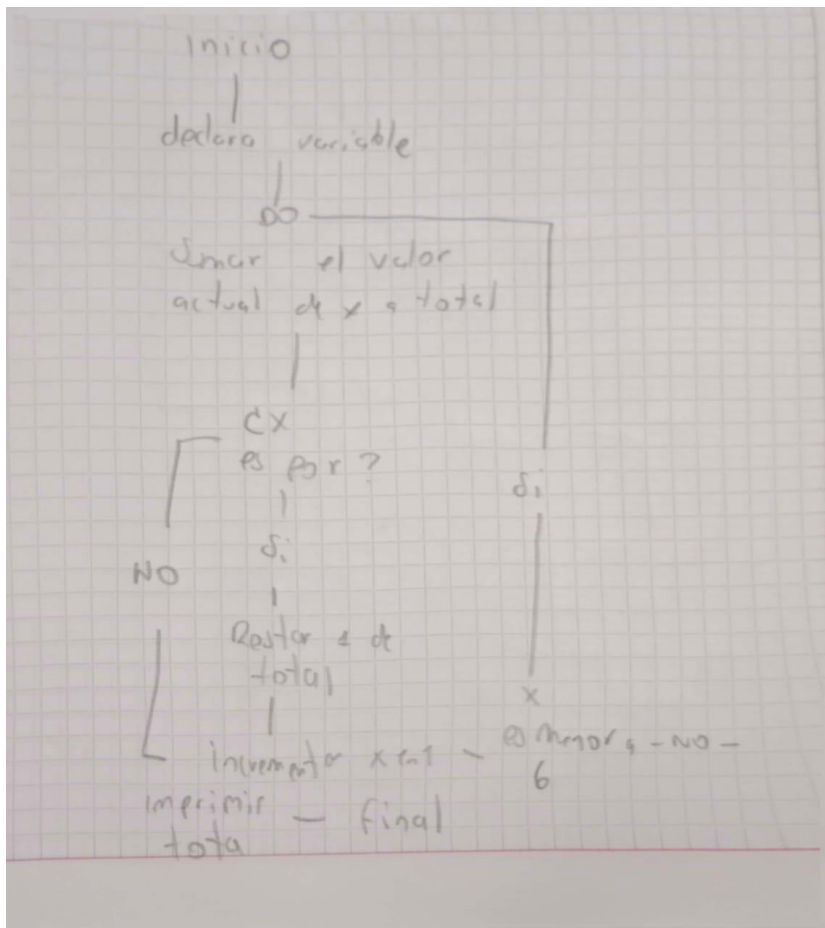 inicio
declara variable
DO
Sumar el valor
actual de x a total
¿X
es par?
si
si
NO
Restar 1 de
total
x
incrementar x en 1 - es menor a - NO -
6
imprimir - final
tota